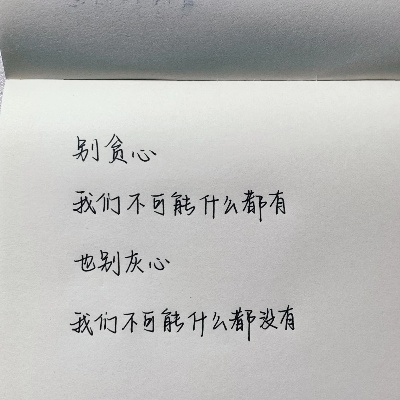 别贪心
我们不可能什么都有
也别灰心
我们不可能什么都没有